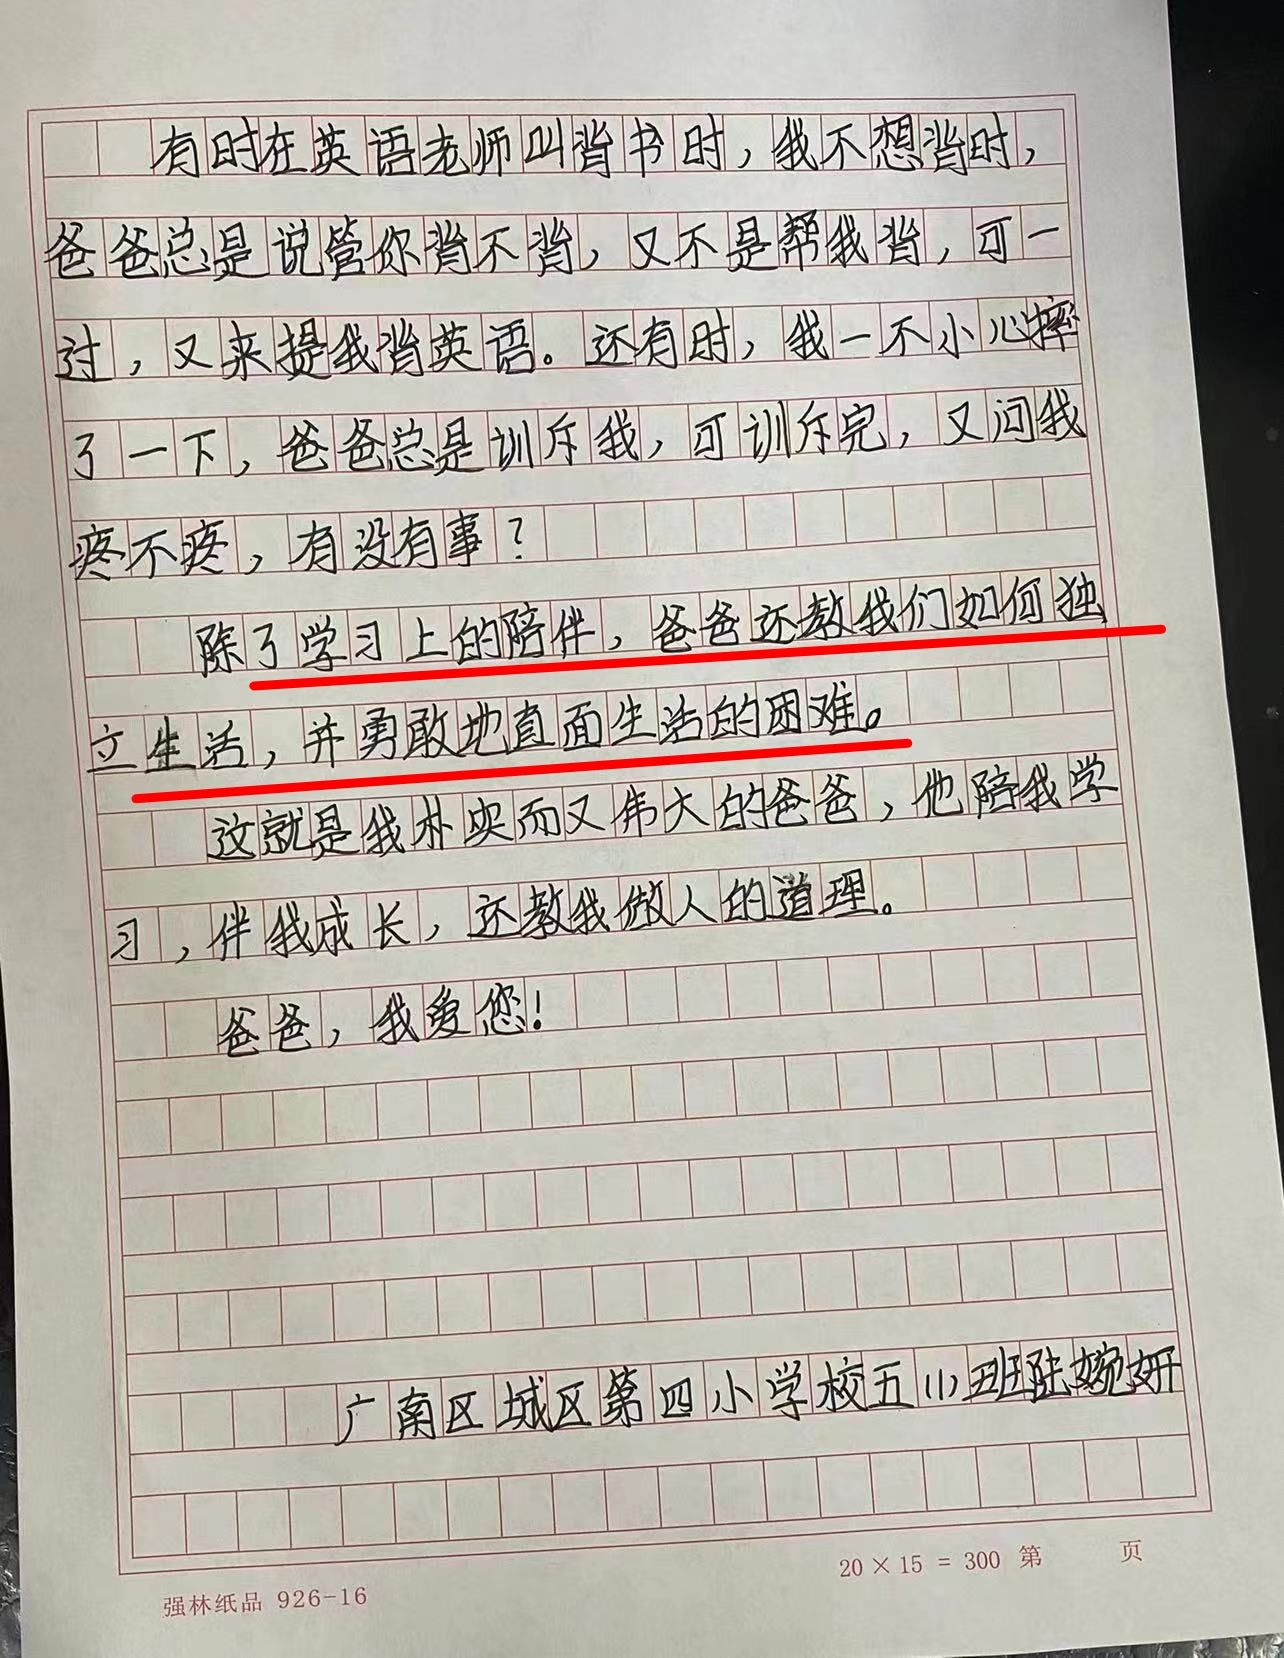 有时在英语老师叫背书时，我不想背时，
爸爸总是说管你背不背，又不是帮我背，可一
过，又来提我背英语。还有时，我一不小心摔
了一下，爸爸总是训斥我，可训斥完，又问我
疼不疼，有没有事？
除了学习上的陪伴，爸爸还教我们如何独
立生活，并勇敢地直面生活的困难。
这就是我朴实而又伟大的爸爸，他陪我学
习，伴我成长，还教我做人的道理。
爸爸，我爱您！
广南区城区第四小学校五(1)班陆婉妍
20×15=300 第 页
强林纸品 926-16